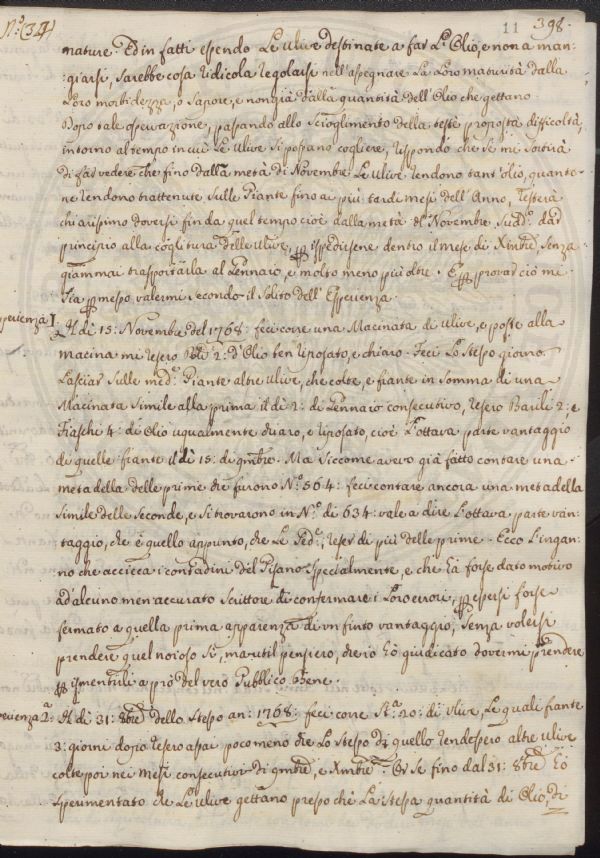 N.º (34)
11 398.
mature. Ed in fatti essendo Le Ulive destinate a far L'Olio, e non a man=
:giarsi, sarebbe cosa ridicola regolarsi nell'assegnare La Loro maturità dalla
Loro morbidezza, o sapore, e non già dalla quantità dell'Olio che gettano
Dopo tale osservazione, passando allo scioglimento della testè proposta difficoltà,
intorno al tempo in cui Le Ulive si possano cogliere, rispondo che se mi sortirà
di far vedere che fino dalla metà di Novembre Le Ulive rendono tant'olio, quanto
ne rendono trattenute sulle Piante fino ai più tardi mesi dell'Anno, resterà
chiarissimo doversi fin da quel tempo cioè dalla metà di Novembre sudd.º dar
principio alla coglitura delle Ulive, per ispedirsene dentro il mese di Xmbre, senza
giammai trasportarla al Gennaio, e molto meno più oltre. E per provar ciò mi
sia permesso valermi secondo il solito dell'Esperienza.
sperienza I.
Il dì 15: Novembre del 1768: feci corre una Macinata di Ulive, e poste alla
macina mi resero 2: d'Olio ben riposato, e chiaro. Feci Lo stesso giorno
Lasciar sulle med.e Piante altre Ulive, che colte, e frante in somma di una
Macinata simile alla prima il dì 2: di Gennaio consecutivo, resero Barili 2: e
Fiaschi 4: di Olio ugualmente chiaro, e riposato, cioè L'ottava parte vantaggio
di quelle frante il dì 15: di 9mbre. Ma siccome avevo già fatto contare una
metadella delle prime che furono N.º 564: feci contare ancora una metadella
simile delle seconde, e si trovarono in N.º di 634: vale a dire L'ottava parte van=
taggio, che è quello appunto, che Le resero di più delle prime. Ecco L'ingan=
no che accieca i contadini del Pisano specialmente, e che ha forse dato motivo
ad alcuno men accurato Scrittore di confermare i Loro errori, per essersi forse
fermato a quella prima apparenza di un finto vantaggio, senza volersi
prendere quel noioso sì, ma util pensiero, che io ho giudicato dovermi prendere
per ismentirli a prò del vero Pubblico Bene.
perienza 2.a
Il dì 31: 8bre dello stesso an: 1768: feci corre St.a 20: di Ulive, Le quali frante
3: giorni dopo resero assai poco meno che Lo stesso di quello rendessero altre ulive
colte poi nei mesi consecutivi di 9mbre, e Xmbre. Or se fino dal 31: 8bre ho
sperimentato che Le ulive gettano presso chè La stessa quantità di Olio, di